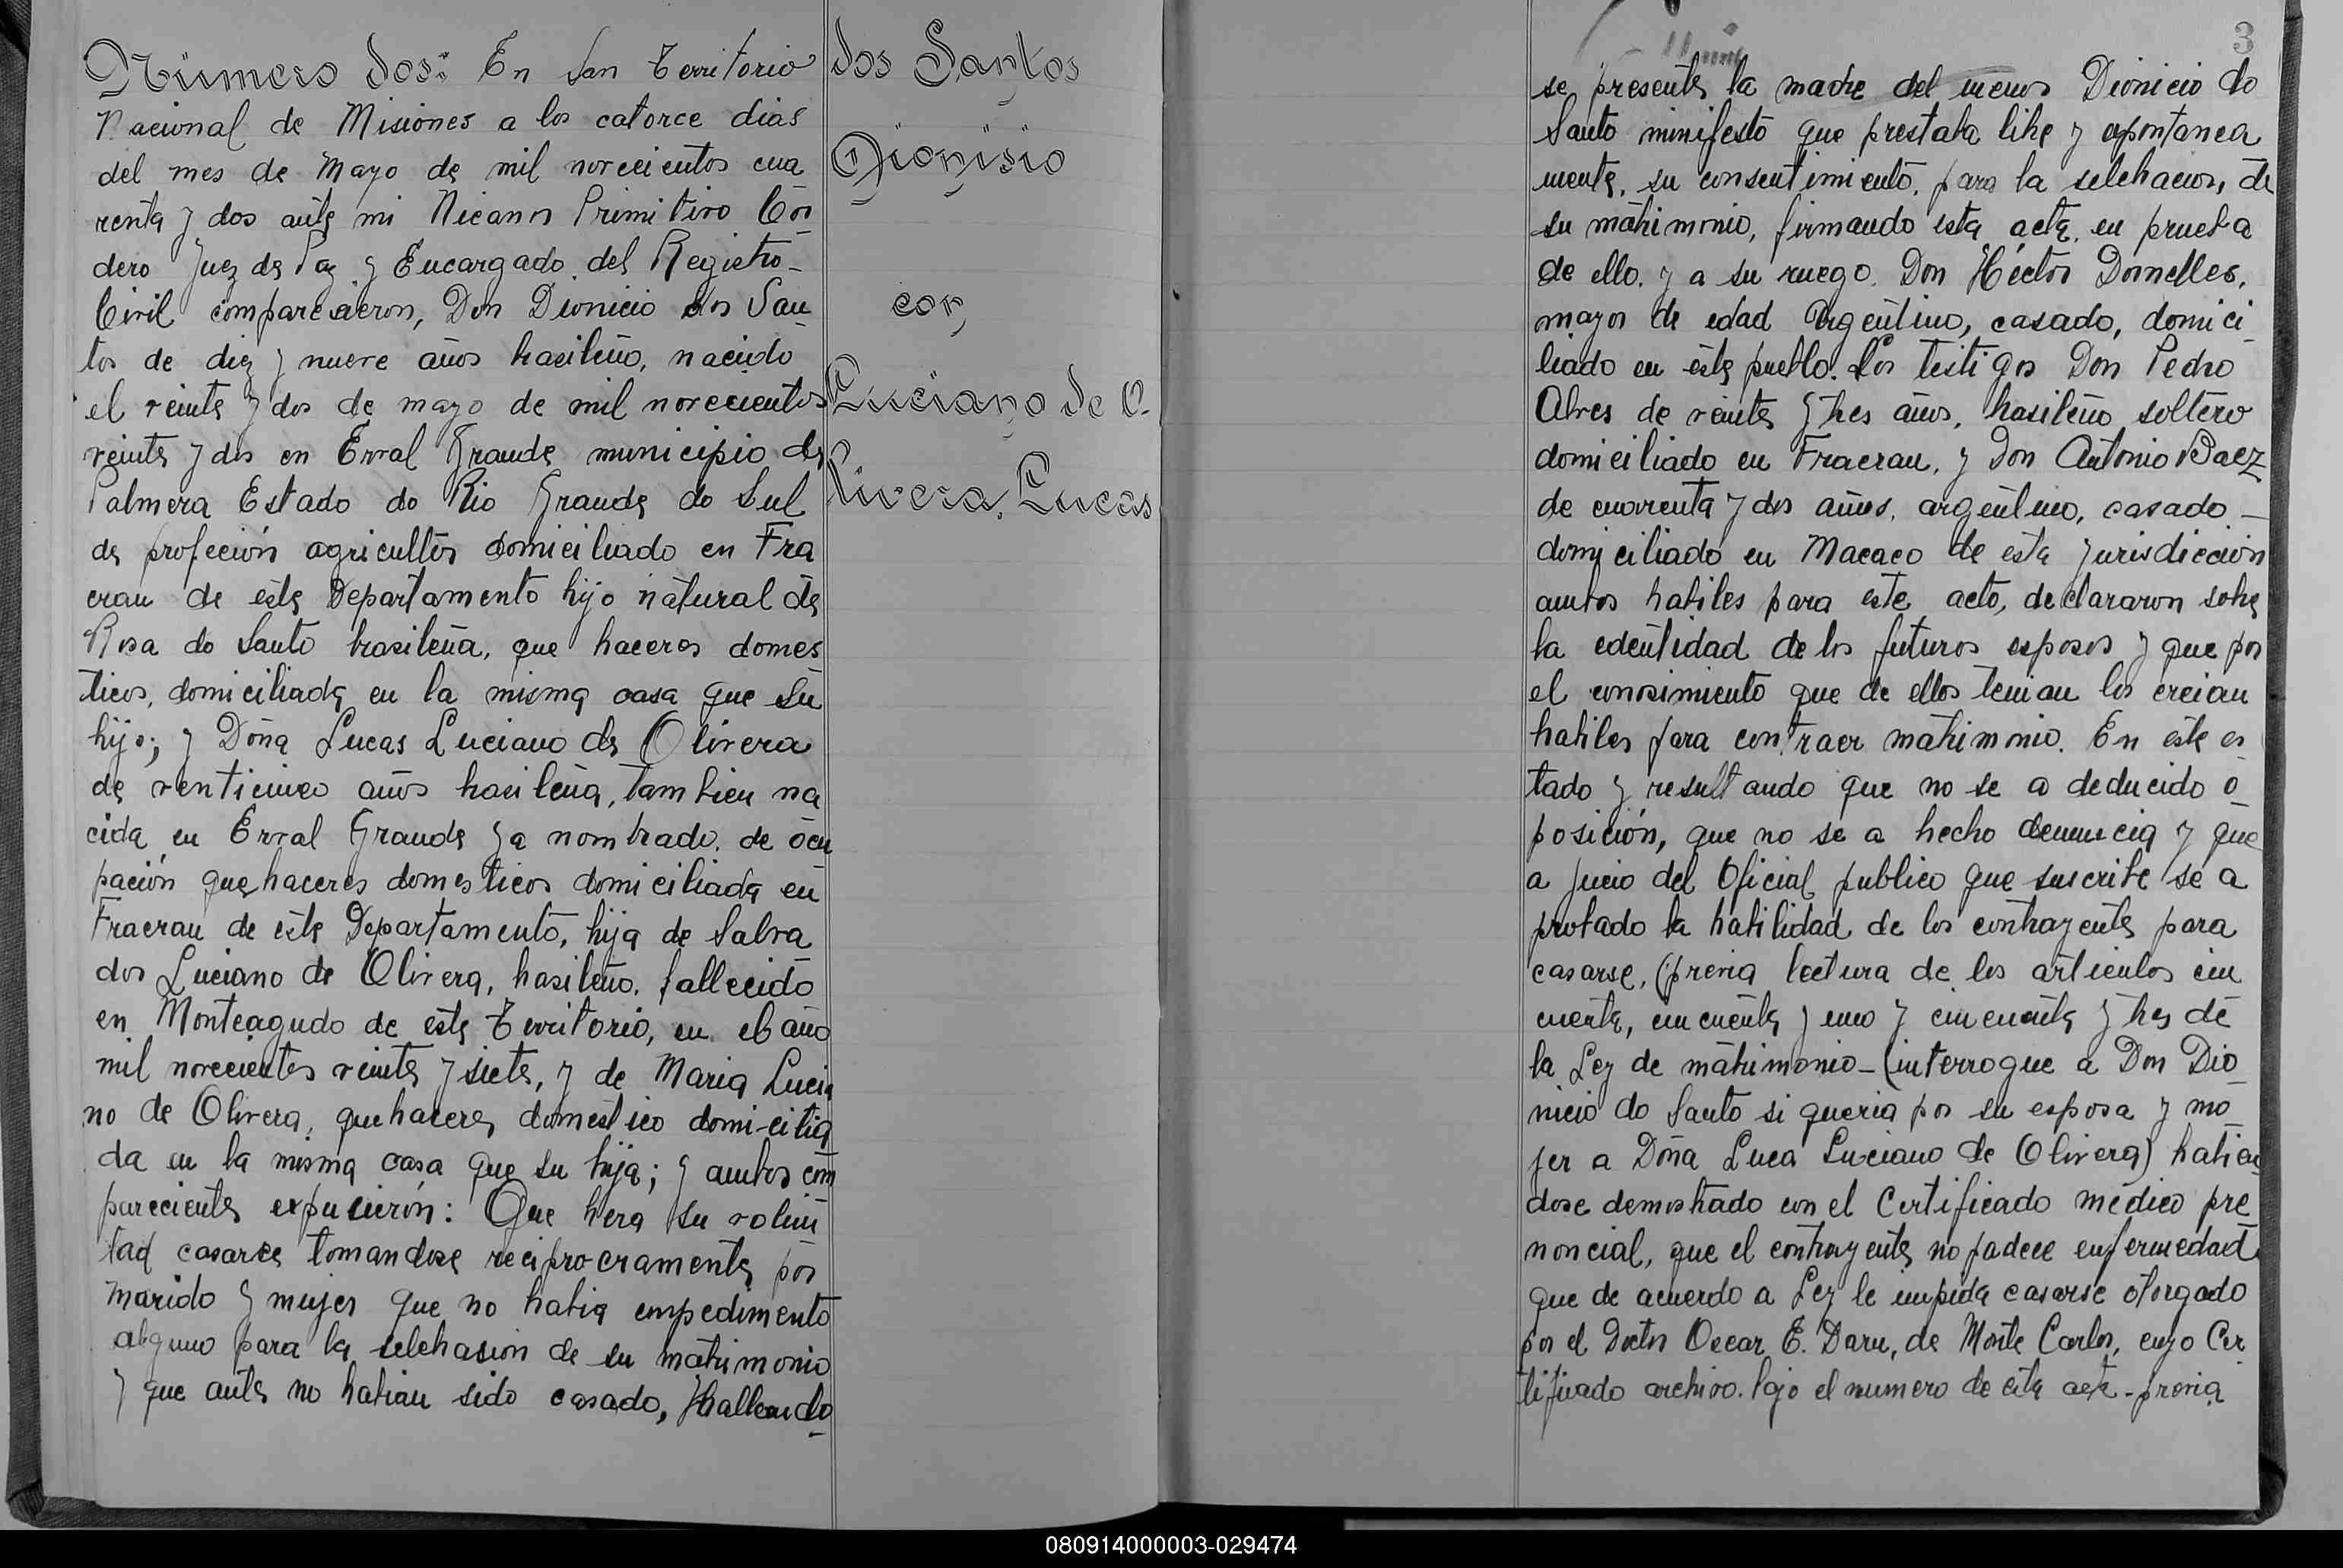 Número dos: En San Territorio
Nacional de Misiones a los catorce dias
del mes de Mayo de mil novecientos cua
renta y dos ante mi Nicanor Primitivo Cor
dero Juez de Paz y Encargado del Registro
Civil comparecieron, Don Dionicio dos San
tos de diez y nueve años brasileño, nacido
el veinte y dos de mayo de mil novecientos
veinte y dos en Erval Grande municipio de
Palmera Estado do Rio Grande do Sul
de profeción agricultor domiciliado en Fra
cran de este Departamento hijo natural de
Rosa do Santo brasileña, que haceres domes
ticos, domiciliada en la misma casa que su
hijo; y Doña Lucas Luciano de Olivera
de venticinco años brasileña, tambien na
cida en Erval Grande ya nombrado. de ocu
pación que haceres domesticos domiciliada en
Fracran de este Departamento, hija de Salva
dor Luciano de Olivera, brasileño. fallecido
en Monteagudo de este Territorio, en el año
mil novecientos veinte y siete, y de Maria Lucia
no de Olivera, que haceres domestico domicilia
da en la misma casa que su hija; y ambos com
parecientes expucieron: Que hera su volun
tad casarce tomandose reciprocramente por
marido y mujer que no habia empedimento
alguno para la selebrasion de su matrimonio
y que ante no habian sido casado, y hallando
dos Santos
Dionisio
con
Luciano de O.
livera, Lucas
3
se presente la madre del menor Dionicio do
Santo minifestó que prestaba libre y espontanea
mente, su consentimiento, para la selebracion, de
su matrimonio, firmando esta acta, en prueba
de ello. y a su ruego. Don Héctor Dornelles,
mayor de edad Argentino, casado, domici
liado en este pueblo. Los testigos Don Pedro
Alves de veinte y tres años, brasileño soltero
domiciliado en Fracran, y Don Antonio Baez
de cuarenta y dos años, argentino, casado
domiciliado en Macaco de esta jurisdicción
ambos habiles para este acto, declararon sobre
la edentidad de los futuros esposos y que por
el conosimiento que de ellos tenian los creian
habiles para contraer matrimonio. En este es
tado y resultando que no se a deducido o
posición, que no se a hecho denuncia y que
a jucio del Oficial publico que suscribe se a
probado la habilidad de los contrayente para
casarse, (previa lectura de los articulos cin
cuenta, cincuenta y uno y cincuenta y tres de
la Ley de matrimonio - (interrogue a Don Dio
nicio do Santo si queria por su esposa y mo
jer a Doña Luca Luciano de Olivera) habien
dose demostrado con el Certificado médico pre
noncial, que el contrayente no padece enfermedad
que de acuerdo a Ley le impida casarse otorgado
por el Doctor Oscar E. Daru, de Monte Carlos, cuyo Cer
tificado archivo. bajo el numero de esta acta - previa
080914000003-029474